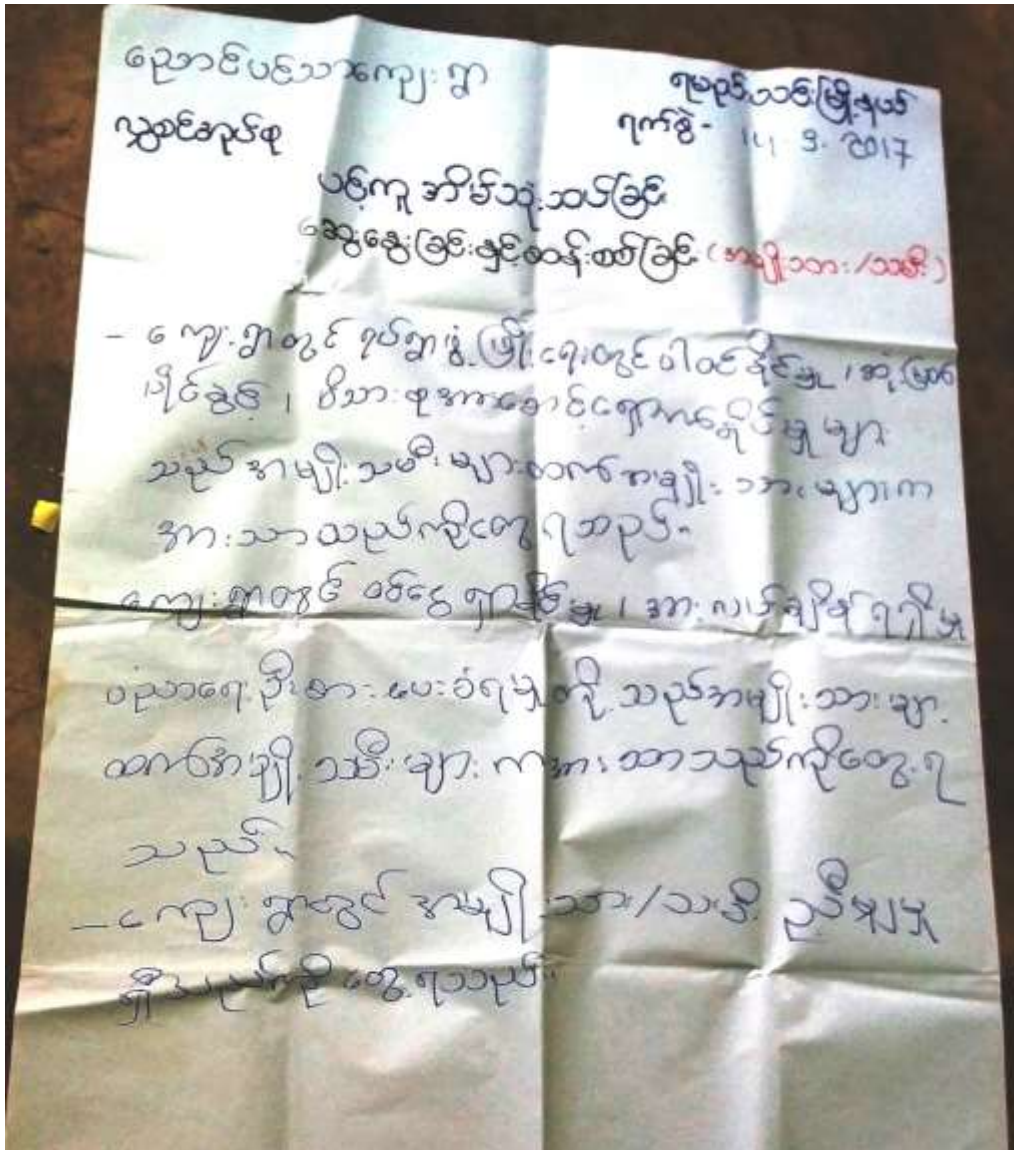 ညောင်ပင်သာကျေးရွာ
ရမည်းသင်းမြို့နယ်
လွှစင်အုပ်စု
ရက်စွဲ - 14 9. 2017
ပင့်ကူအိမ်သုံးသပ်ခြင်း
ဆွေးနွေးခြင်းနှင့်ဆန်းစစ်ခြင်း (အမျိုးသား/သမီး)
- ကျေးရွာတွင် ရပ်ရွာဖွံ့ဖြိုးရေးတွင်ပါဝင်နိုင်မှု၊ ဆုံးဖြတ်
ပိုင်ခွင့်၊ မိသားစုအားစောင့်ရှောက်နိုင်မှုများ
သည် အမျိုးသမီးများထက်အမျိုးသားများက
အားသာသည်ကိုတွေ့ရသည်။
ကျေးရွာတွင် ဝင်ငွေရှာနိုင်မှု၊ အားလပ်ချိန်ရရှိမှု
ပညာရေးဦးစားပေးခံရမှုတို့သည်အမျိုးသားများ
ထက်အမျိုးသမီးများကအားသာသည်ကိုတွေ့ရ
သည်။
- ကျေးရွာတွင် အမျိုးသား/သမီး ညီမျှမှု
ရှိသည်ကိုတွေ့ရသည်။